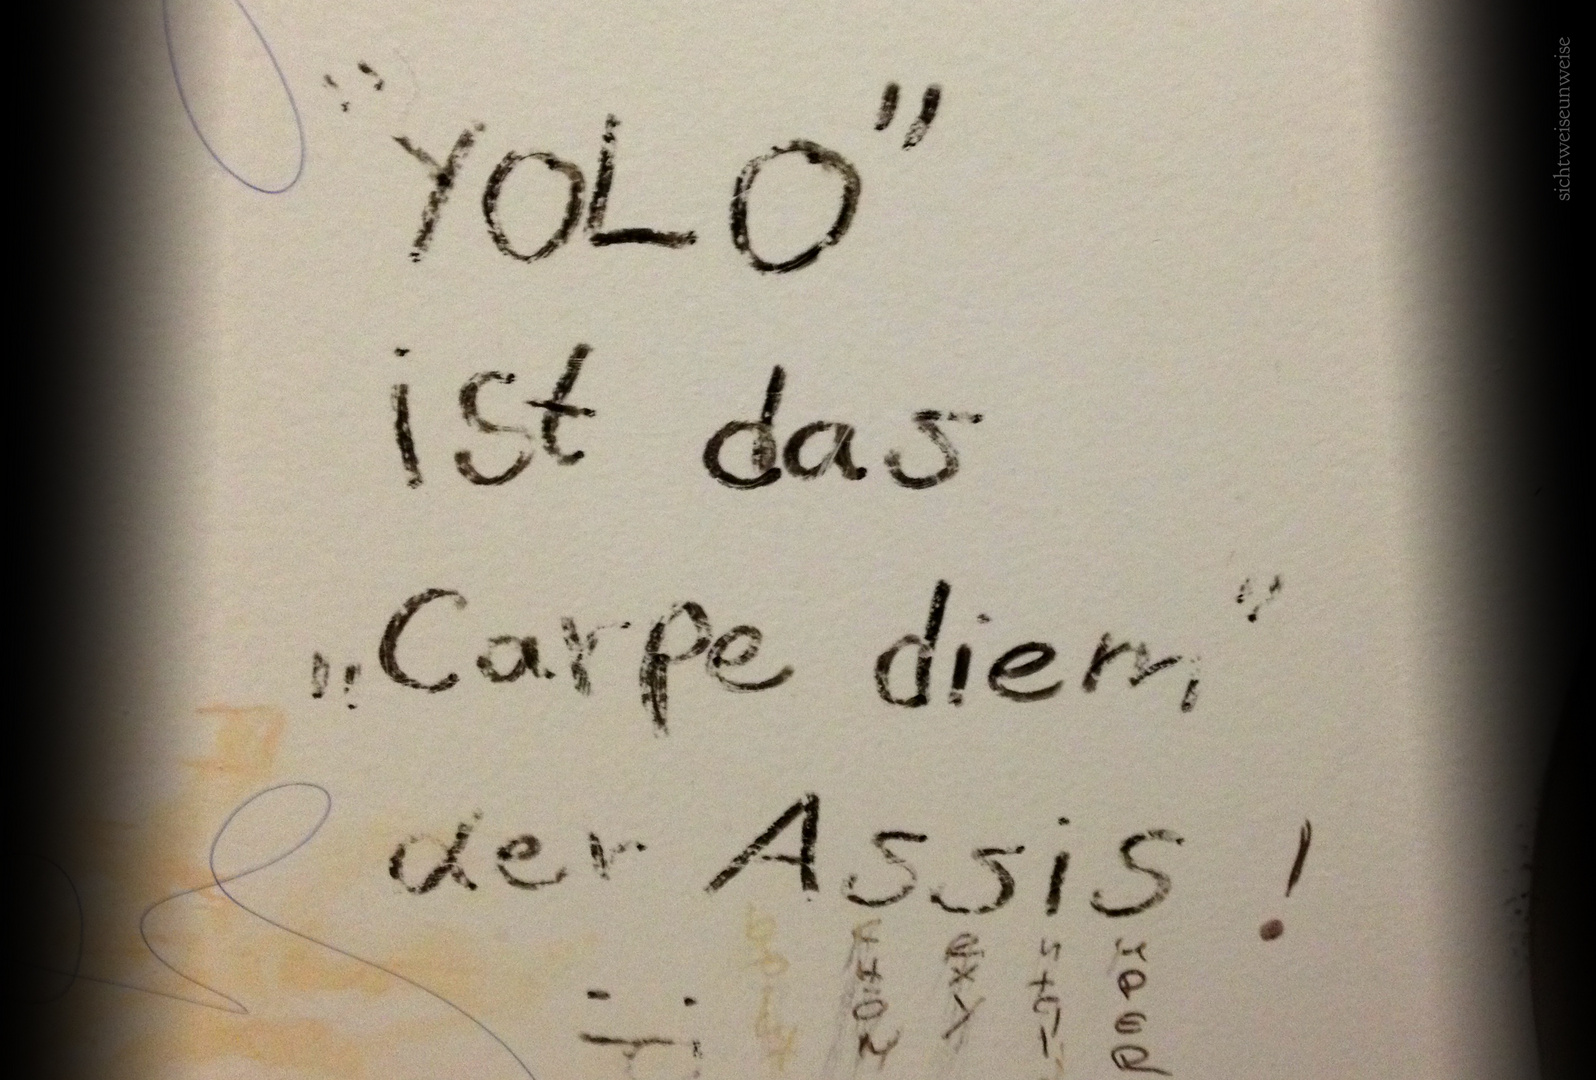 "YOLO"
ist das
„Carpe diem"
der Assis!
sichtweiseunweise